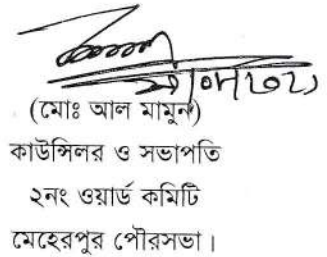 (মোঃ আল মামুন)
কাউন্সিলর ও সভাপতি
২নং ওয়ার্ড কমিটি
মেহেরপুর পৌরসভা।